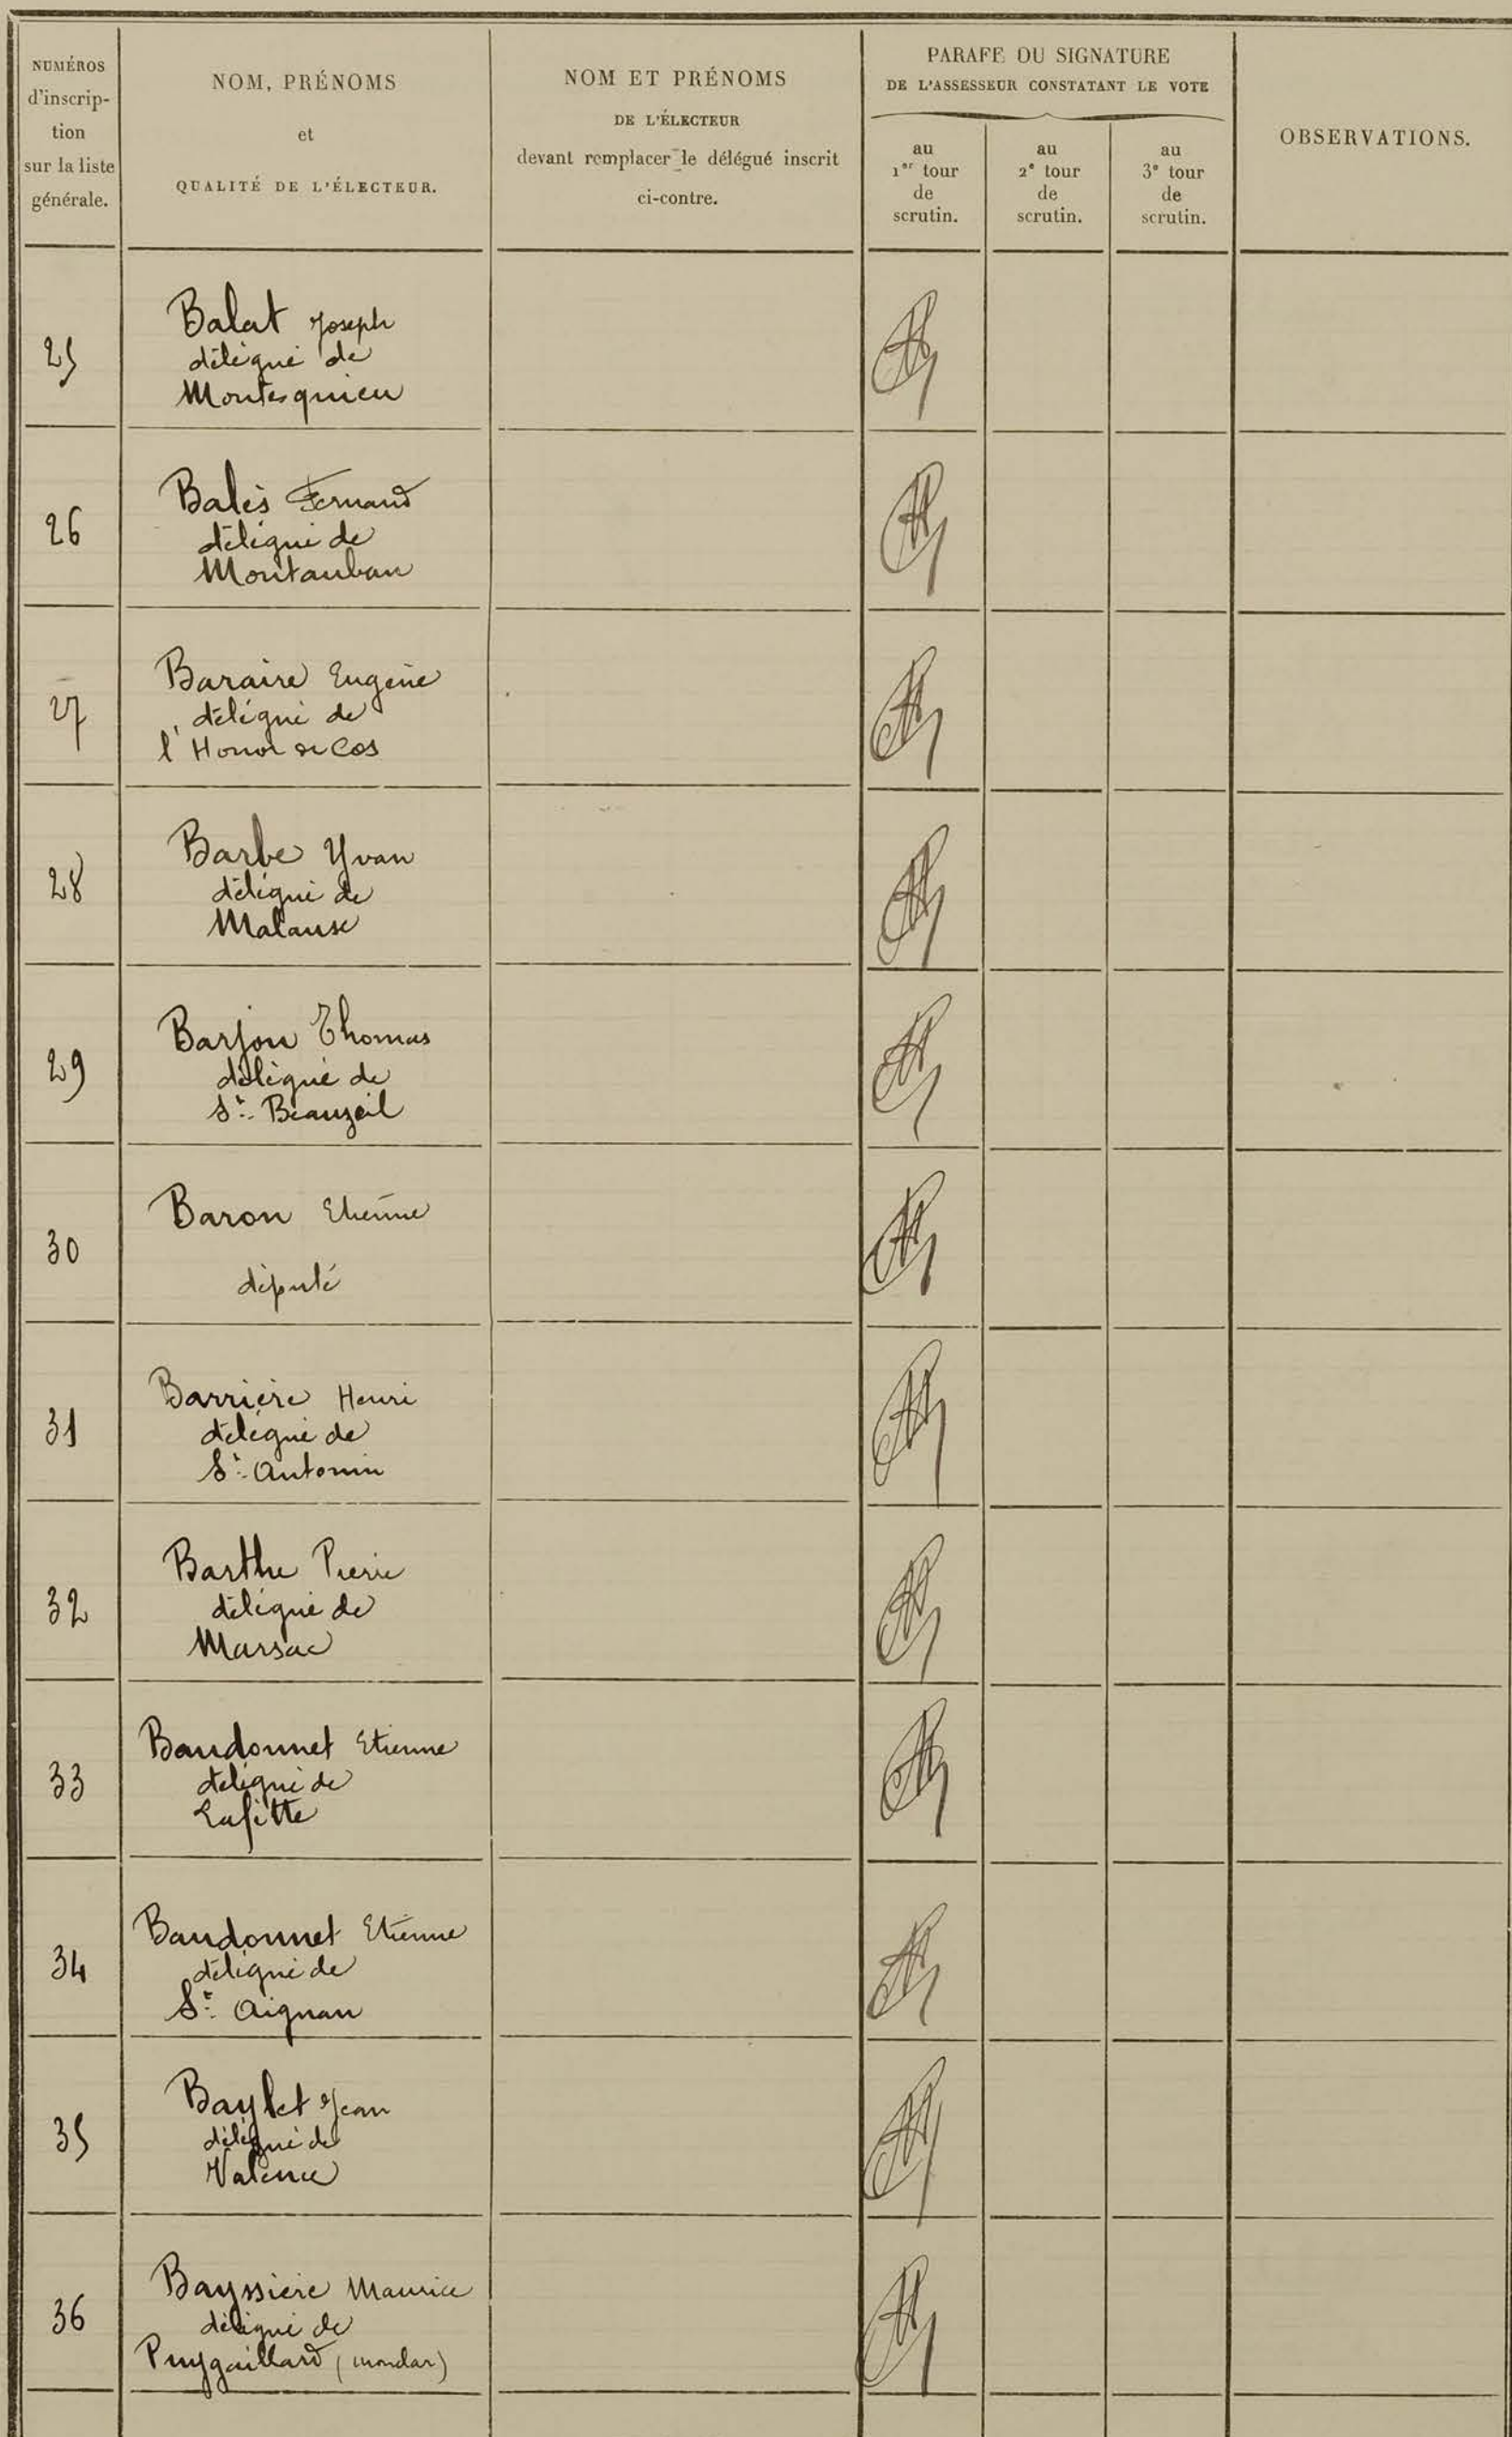 NUMÉROS
d'inscrip-
tion
sur la liste
générale.
NOM, PRÉNOMS
et
QUALITÉ DE L'ÉLECTEUR.
NOM ET PRÉNOMS
DE L'ÉLECTEUR
devant remplacer le délégué inscrit
ci-contre.
PARAFE OU SIGNATURE
DE L'ASSESSEUR CONSTATANT LE VOTE
au
1er tour
de
scrutin.
au
2e tour
de
scrutin.
au
3e tour
de
scrutin.
OBSERVATIONS.
25
Balat Joseph
délégué de
Montesquieu
26
Balès Fernand
délégué de
Montauban
27
Baraire Eugène
délégué de
l'Honor de Cos
28
Barbe Yvan
délégué de
Malause
29
Barjou Thomas
délégué de
St. Beauzeil
30
Baron Etienne
député
31
Barrière Henri
délégué de
St. Antonin
32
Barthe Pierre
délégué de
Marsac
33
Baudonnet Etienne
délégué de
Lafitte
34
Baudonnet Etienne
délégué de
St. Aignan
35
Baylet Jean
délégué de
Valence
36
Bayssière Maurice
délégué de
Puygaillard